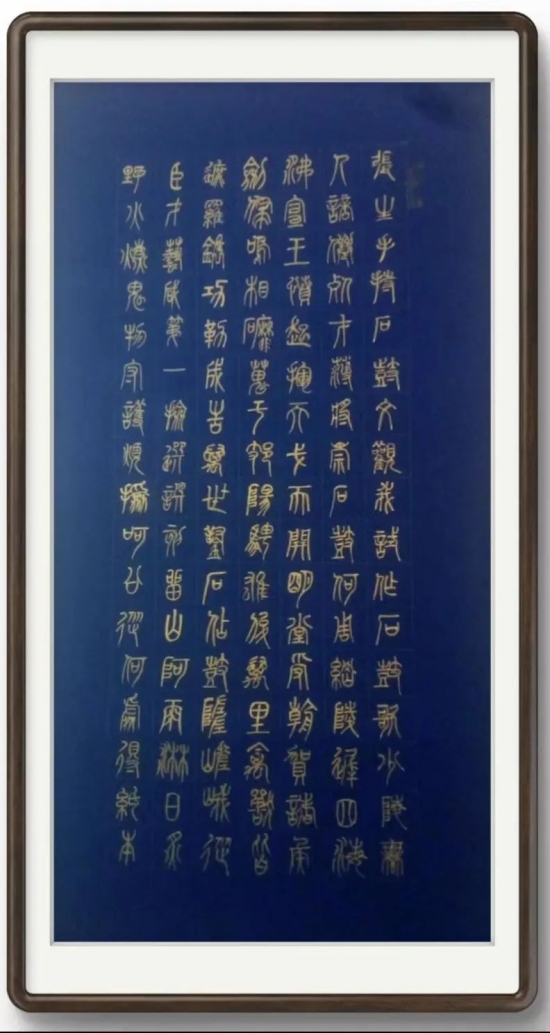 張生手持石鼓文觀我試作石鼓歌少陵無
人謫僊死才薄將柰石鼓何周綱陵遲四海
沸宣王憤起揮天戈而開明堂受朝賀諸侯
劍佩鳴相磨蒐于岐陽騁雄俊萬里禽獸皆
遮羅鐫功勒成告萬世鑿石作鼓隳嵯峨從
臣才藝咸第一揀選譔刻留山阿雨淋日炙
野火燎鬼物守護煩撝呵公從何處得紙本